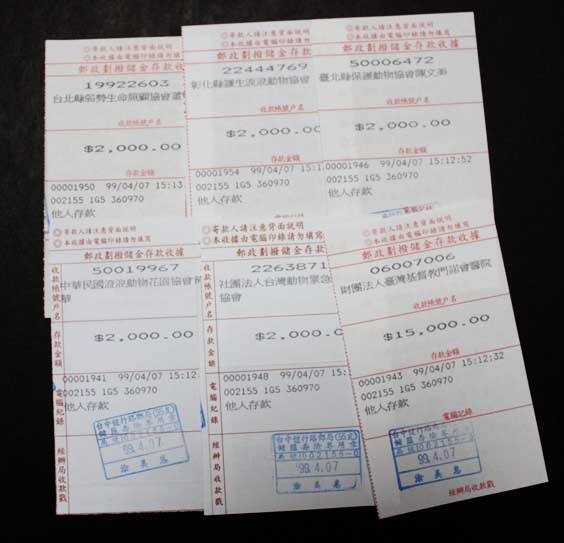 ◎寄款人請注意背面說明
◎本收據由電腦印錄請勿
郵政劃撥儲金存款
19922603
台北縣弱勢生命照顧協會
收款帳號戶名
$2,000.00
存款金額
00001950 99/04/07 15:13
002155 1G5 360970
他人存款
◎寄款人請注意背面說明
◎本收據由電腦印錄請勿
郵政劃撥儲金存款
22444769
彰化縣護生流浪動物協會
收款帳號戶名
$2,000.00
存款金額
00001954 99/04/07 15:1
002155 1G5 360970
他人存款
◎寄款人請注意背面說明
◎本收據由電腦印錄請勿填寫
郵政劃撥儲金存款收據
50006472
臺北縣保護動物協會陳文
收款帳號戶名
$2,000.00
存款金額
00001946 99/04/07 15:12:52
002155 1G5 360970
他人存款
◎寄款人請注意背面說明
◎本收據由電腦印錄請勿填寫
郵政劃撥儲金存款收據
收款帳號戶名
50019967
中華民國流浪動物花園協會
存款金額
$2,000.00
電腦紀錄
00001941 99/04/07 15:12
002155 1G5 360970
他人存款
經辦局收款戳
99.4.07
◎寄款人請注意背面說明
◎本收據由電腦印錄請勿填寫
郵政劃撥儲金存款
收款帳號戶名
2263871
社團法人台灣動物緊急
協會
存款金額
$2,000.00
電腦紀錄
00001948 99/04/07 15:1
002155 1G5 360970
他人存款
經辦局收款戳
99.4.07
◎寄款人請注意背面說明
◎本收據由電腦印錄請勿填寫
郵政劃撥儲金存款收據
06007006
財團法人臺灣基督教門諾會醫院
收款帳號戶名
$15,000.00
存款金額
00001943 99/04/07 15:12:32
002155 1G5 360970
他人存款
電腦記錄
99.4.07
經辦局收款戳